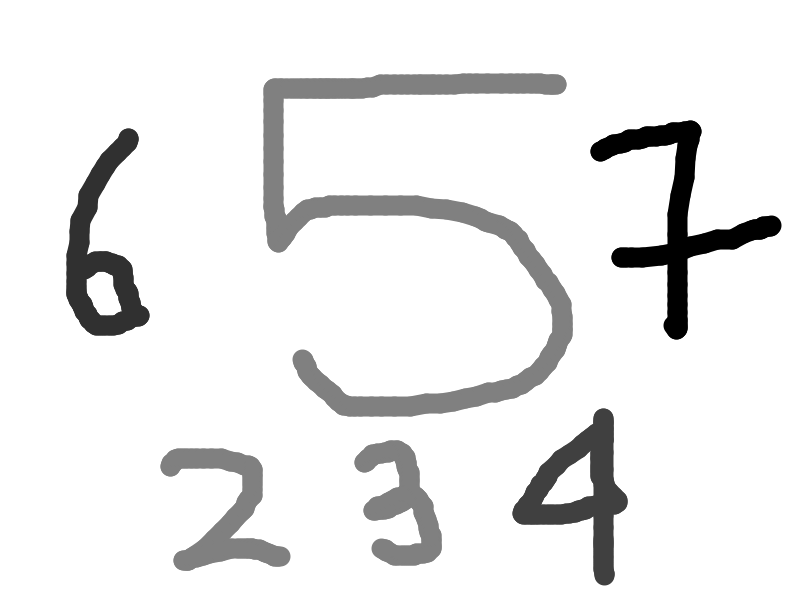 6 5 7
2 3 4